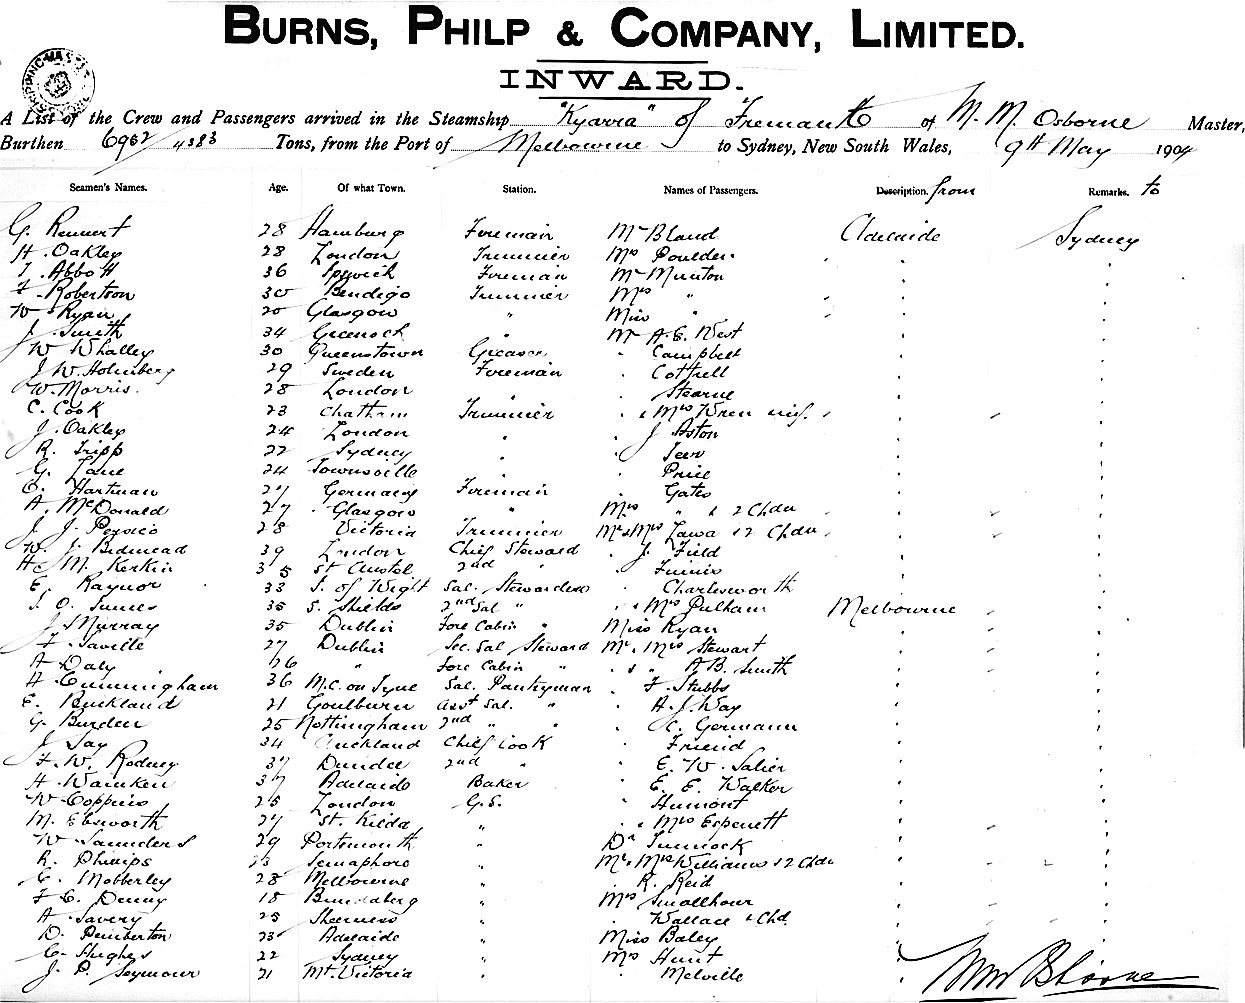 BURNS, PHILP & COMPANY, LIMITED.
INWARD.
A List of the Crew and Passengers arrived in the Steamship "Kyarra" of Fremantle of M. M. Osborne Master,
Burthen 6952/4383 Tons, from the Port of Melbourne to Sydney, New South Wales, 9th May 1904
Seamen's Names. Age. Of what Town. Station. Names of Passengers. Description. from Remarks. to
G. Rennert 28 Hamburg Foreman Mr Bland Adelaide Sydney
H. Oakley 28 London Trimmer Mrs Poulden "
T. Abbott 36 Ipswich Fireman Mr Munton
F. Robertson 30 Bendigo Trimmer Mrs "
W. Ryan 20 Glasgow " Miss "
J. Smith 34 Greenock " Mr A. E. West
W Whalley 30 Queenstown Greaser " Campbell
J W. Holmberg 29 Sweden Fireman " Cottrell
W. Morris. 28 London " " Stearne
C. Cook 23 Chatham Trimmer " & Mrs Wren
J. Oakley 24 London " J Aston
R. Tripp 22 Sydney "
G. Lane 24 Townsville " " Price
E. Hartman 27 Germany Fireman " Gates
A. McDonald 27 Glasgow " Mrs " & 2 Chdn
J. J. 28 Victoria Trimmer Mr & Mrs Lawa & 2 Chdn
W. J. Bidmead 39 London Chief Steward " J. Field
H. M. Kerkin 35 St Austel 2nd "
E. Raynor 33 I. of Wight Sal. Stewardess " Charlesworth
35 S. Shields 2nd Sal " " & Mrs Pulham Melbourne
J. Murray 35 Dublin Fore Cabin " Miss Ryan
F. Saville 27 Dublin Sec. Sal Steward Mr & Mrs Stewart
A Daly 26 " Fore Cabin " " & " A. B. Smith
A. Cunningham 36 N.C. on Tyne Sal. Pantryman " F. Stubbs
E. Buckland 21 Goulburn Asst Sal. " " A. J. Way
G. Burden 25 Nottingham 2nd " " " C. Germann
J. Jay 34 Auckland Chief Cook " Friend
F. W. Rodney 37 Dundee 2nd " " E. W. Salier
H. Wainken 37 Adelaide Baker " E. E. Walker
W. Coppins 25 London G.S. " Humont
M. Ebsworth 27 St. Kilda " " & Mrs Espenett
W Saunders 29 Portsmouth " Dr Tunnock
R. Phillips 23 Semaphore " Mr & Mrs Williams & 2 Chdn
C. Mobberley 28 Melbourne " " R. Reid
F. C. Denny 18 Bundaberg " Mrs Smallhour
A. Savery 25 Sheerness " " Wallace & Chd.
D. Pemberton 23 Adelaide " Miss Baley
C. Hughes 22 Sydney " Mrs Hunt
J. P. Seymour 21 Mt. Victoria " " Melville